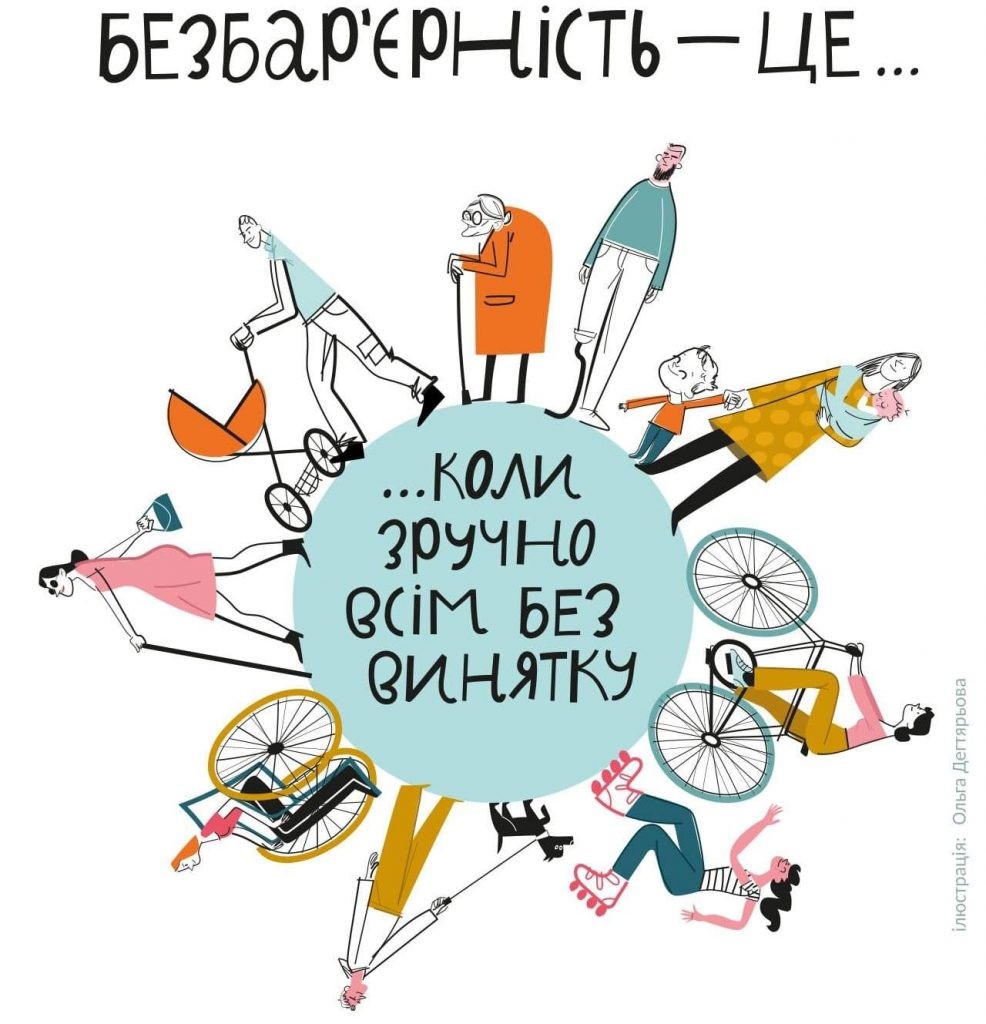 БЕЗБАР'ЄРНІСТЬ — ЦЕ...
...КОЛИ
ЗРУЧНО
ВСІМ БЕЗ
ВИНЯТКУ
ілюстрація: Ольга Дегтярьова